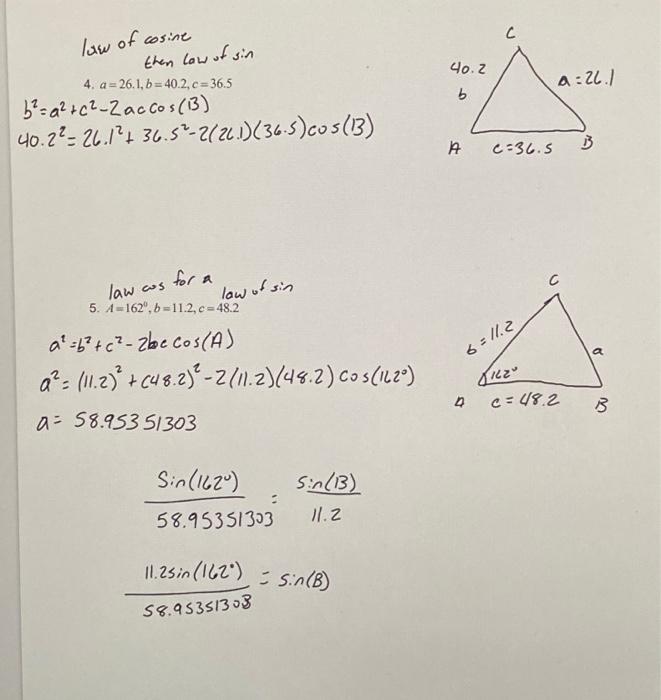 law of cosine
then law of sin
4. a = 26.1, b = 40.2, c = 36.5
b² = a² + c² - 2ac cos(B)
40.2² = 26.1² + 36.5² - 2(26.1)(36.5)cos(B)
C
40.2
b
a = 26.1
A
c = 36.5
B
law cos for a
law of sin
5. A = 162⁰, b = 11.2, c = 48.2
a² = b² + c² - 2bc cos(A)
a² = (11.2)² + (48.2)² - 2(11.2)(48.2)cos(162°)
a = 58.95351303
C
b = 11.2
a
162°
A
c = 48.2
B
Sin(162°) = Sin(B)
58.95351303 11.2
11.2sin(162°) = Sin(B)
58.95351303